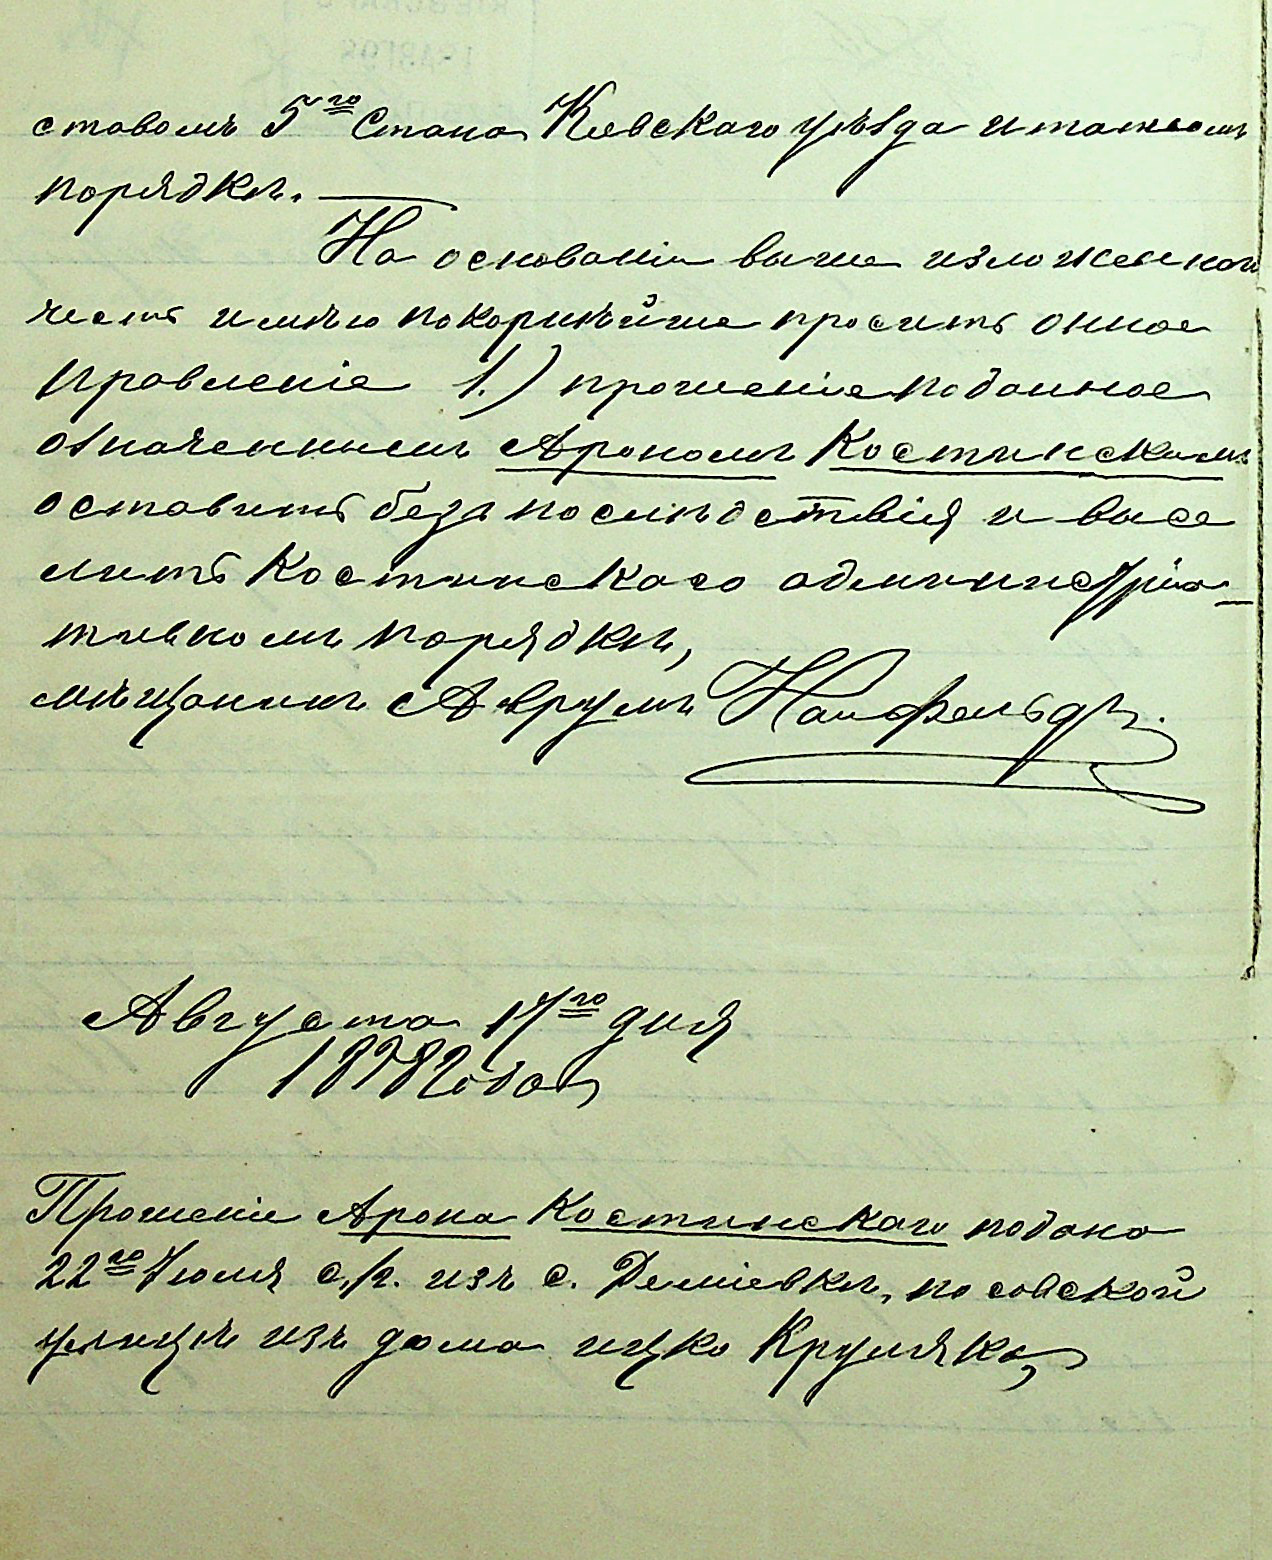 ставомъ 5го Стана Кіевскаго уѣзда и такомъ
порядкѣ.
На основаніи выше изложенной
честь имѣю покорнѣйше просить оное
Правленіе 1.) прошеніе поданное
означеннымъ Арономъ Костинскимъ
оставить безъ послѣдствія и высе
лить Костинскаго администра-
тивномъ порядкѣ,
мѣщанинъ Аврумъ
Августа 17го дня
1898 года,
Прошеніе Арона Костинскаго подано
22го Іюля с./г. изъ с. Деміевки, по совской
улицѣ изъ дома ицко Круляка,